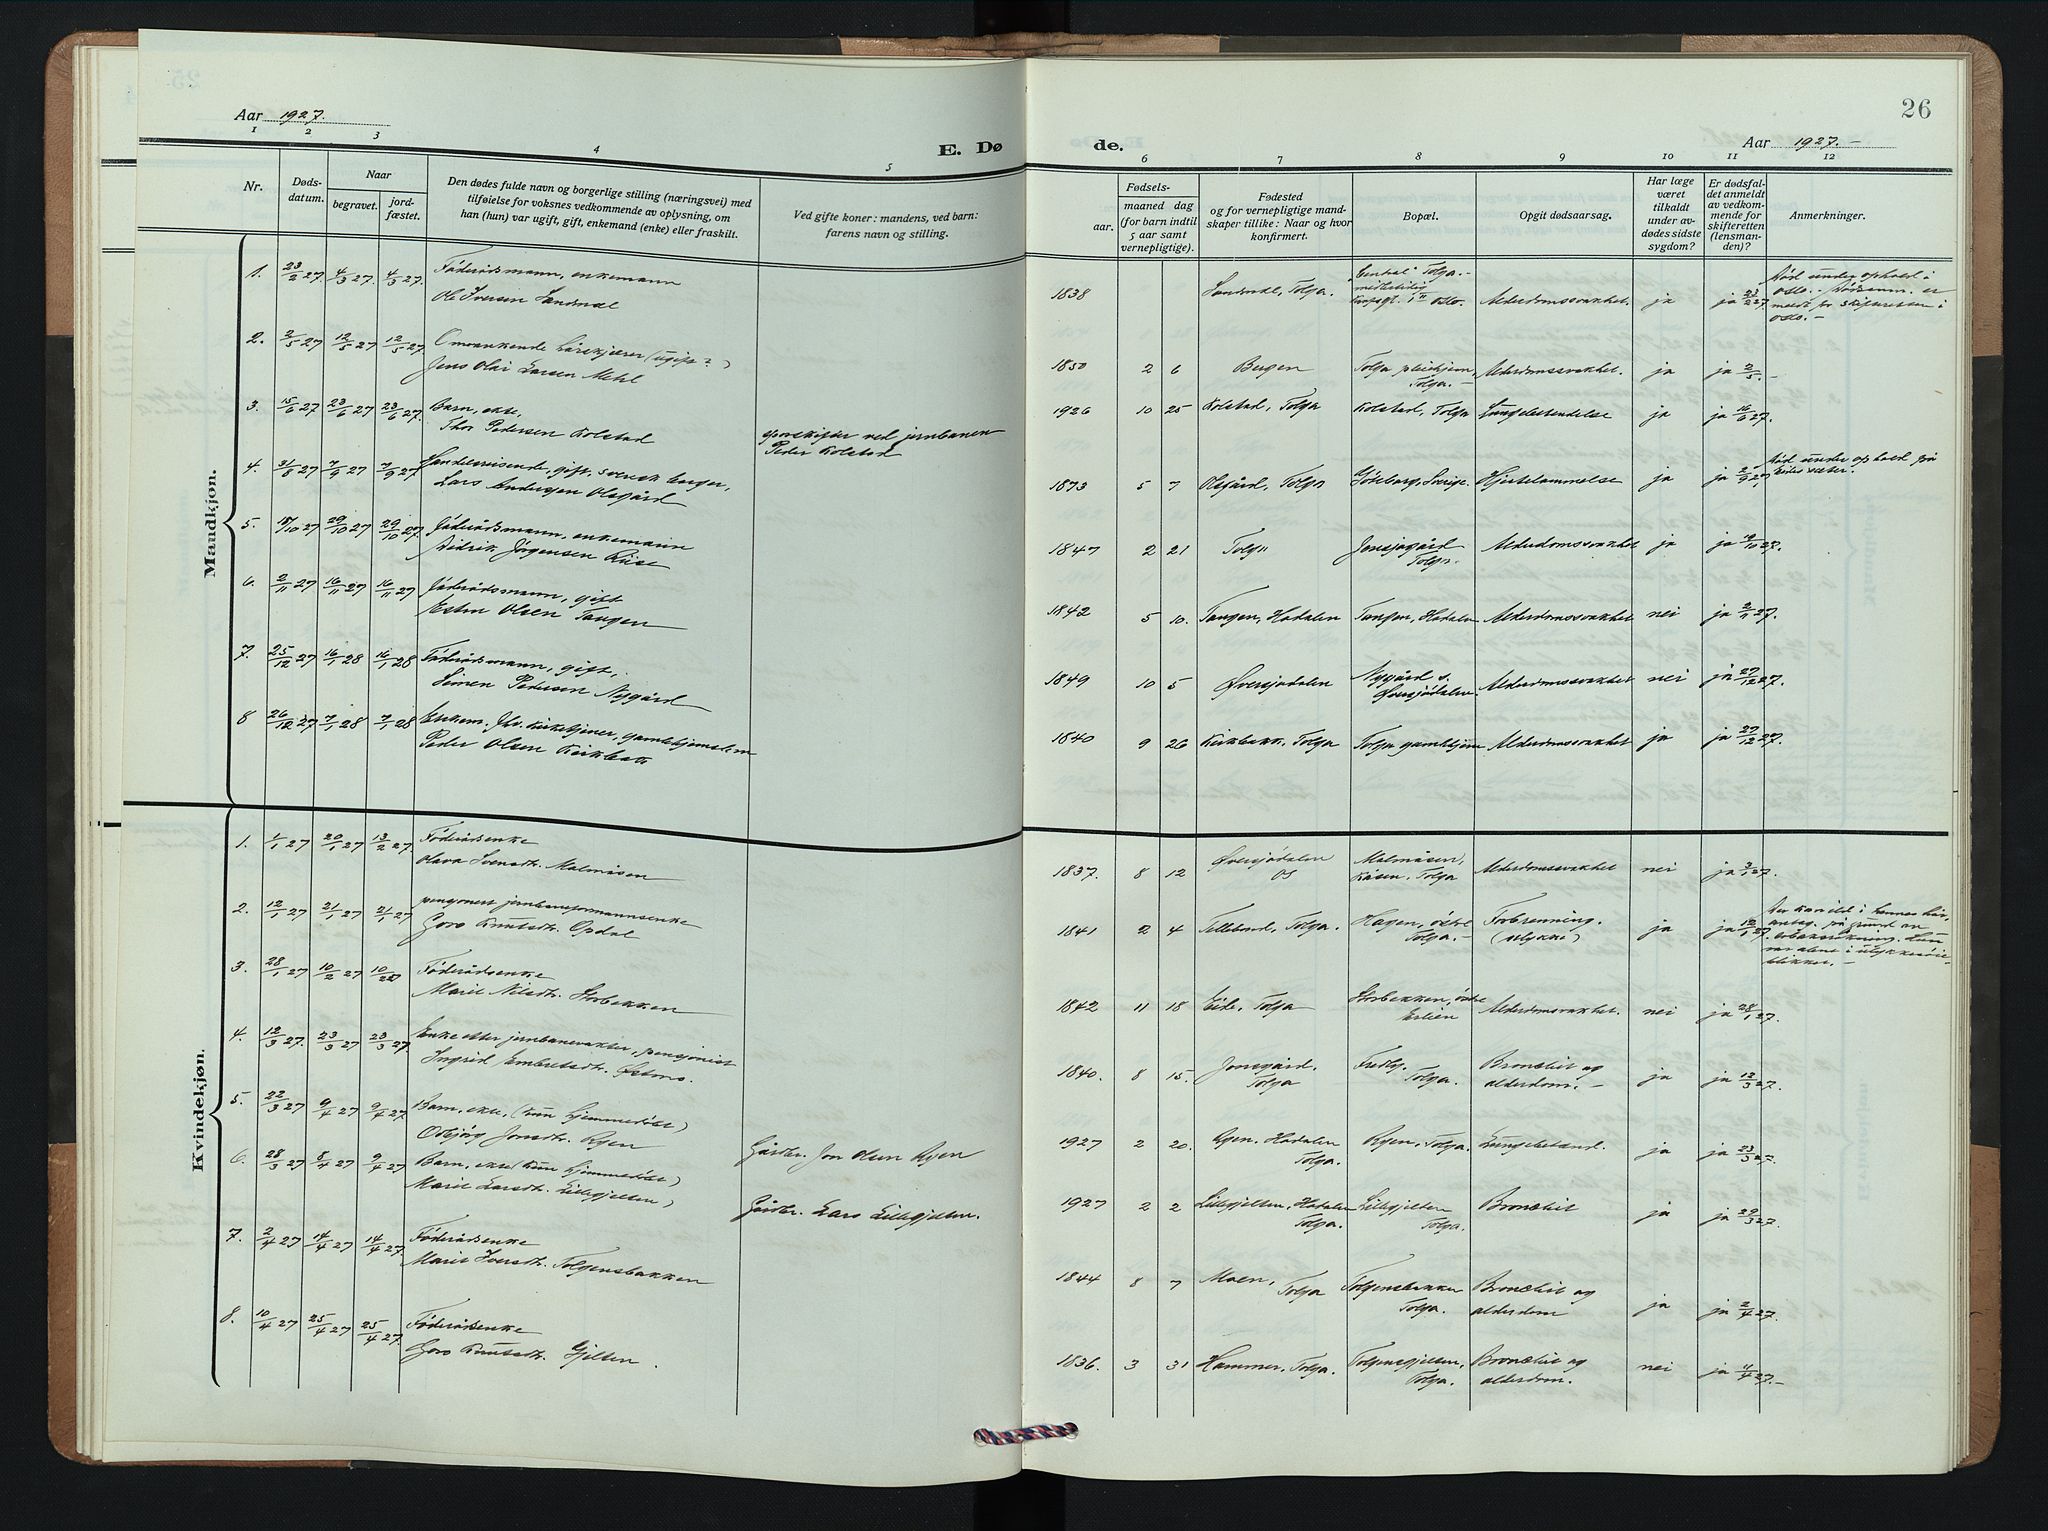 Aar 1927.
E. Dø
1 2 3 4 5
Nr.
Døds-
datum.
Naar
begravet.
jord-
fæstet.
Den dødes fulde navn og borgerlige stilling (næringsvei) med
tilføielse for voksnes vedkommende av oplysning, om
han (hun) var ugift, gift, enkemand (enke) eller fraskilt.
Ved gifte koner: mandens, ved barn:
farens navn og stilling.
Mandkjøn.
1. 23/2 27 4/3 27 4/3 27 Föderådsmann, enkemann
Ole Iversen Sandnal
2. 2/5 27 12/5 27 12/5 27 Omvankende
Jens Olai Larsen Mehl
3. 15/6 27 23/6 27 23/6 27 Barn, ekte,
Thor Pedersen Kolstad
sporskifter ved jernbanen
Peder Kolstad
4. 31/8 27 7/9 27 7/9 27 Handelsreisende, gift, svensk borger,
Lars Andersen Olsgård
5. 15/10 27 29/10 27 29/10 27 Föderådsmann, enkemann
Didrik Jörgensen Riise
6. 2/11 27 16/11 27 16/11 27 Föderådsmann, gift
Esten Olsen Tangen
7. 25/12 27 16/1 28 16/1 28 Föderådsmann, gift,
Simen Pedersen Nygård
8 26/12 27 7/1 28 7/1 28 Enkem. fhv. kirketjener, gamlehjemslem
Peder Olsen Kirkbakk
Kvindekjøn.
1. 1/1 27 20/1 27 13/2 27 Föderådsenke
Olava Svensdtr. Malmåsen
2. 12/1 27 21/1 27 21/1 27 pensjonert jernbaneformannsenke
Goro Knutsdtr. Opdal
3. 28/1 27 10/2 27 10/2 27 Föderådsenke
Marit Nilsdtr. Storbekken
4. 12/3 27. 23/3 27 23/3 27 Enke etter jernbanevakter, pensjonist
Ingrid Embretsdtr. Östmo.
5. 22/3 27 9/4 27 9/4 27. Barn, ekte, (kun hjemmedöbt)
Osbjörg Jonsdtr. Ryen
Gårdbr. Jon Olsen Ryen
6. 28/3 27 8/4 27 9/4 27 Barn, ekte (kun hjemmedöbt)
Marit Larsdtr. Lillegjelten
Gårdbr. Lars Lillegjelten.
7. 2/4 27 14/4 27 14/4 27. Föderådsenke
Marit Iversdtr. Tolgensbakken
8. 10/4 27 25/4 27 25/4 27. Föderådsenke
Goro Knutsdtr. Gjelten.
26
de.
Aar 1927.-
6 7 8 9 10 11 12
Fødsels-
aar.
maaned dag
(for barn indtil
5 aar samt
vernepligtige).
Fødested
og for vernepligtige mand-
skaper tillike: Naar og hvor
konfirmert.
Bopæl.
Opgit dødsaarsag.
Har læge
været
tilkaldt
under av-
dødes sidste
sygdom?
Er dødsfal-
det anmeldt
av vedkom-
mende for
skifteretten
(lensman-
den)?
Anmerkninger.
1838 Sandnal, Tolga. Central, Tolga.- midlertidig Oslo. Alderdomssvakhet. ja ja 23/2 27
Död under ophold i
Oslo. Dödsanm. er
meldt for skifteretten i
Oslo.-
1850 2 6 Bergen Tolga pleiehjem, Tolga.- Alderdomssvakhet. ja ja 2/5 -
1926 10 25 Kolstad, Tolga Kolstad, Tolga Lungebetendelse ja ja 16/6 27.
1873 5 7 Olsgård, Tolga Göteborg, Sverige. Hjertelammelse ja ja 2/9 27,
Död under ophold på
Eides sæter.
1847 2 21 Tolga Jonsjogård Tolga. Alderdomssvakhet ja ja 27.
1842 5 10. Tangen, Hodalen Tangen, Hodalen Alderdomssvakhet nei ja 2/11 27.
1849 10 5 Øversjødalen Nygård s. Øversjødalen Alderdomssvakhet nei ja 27/12 27.
1840 9 26 Kirkbakk, Tolga Tolga gamlehjem Alderdomssvakhet ja ja 27/12 27.
1837. 8 12 Øversjødalen Os Malmåsen, Kåsen, Tolga Alderdomssvakhet nei ja 3/1 27.
1841 2 4 Tellebond, Tolga. Hagen, östre Tolga.- Forbrenning. (ulykke) ja ja 12/1 27.
1842 11 18 Eide, Tolga Storbekken, östre Erlien Alderdomssvakhet. nei ja 28/1 27.
1840. 8 15. Jonsgård, Tolga Fredly, Tolga. Bronchit og alderdom.- ja ja 12/3 27.
1927 2 20. Ryen, Hodalen Tolga. Ryen, Tolga. Lungebetend. ja ja 23/3 27.
1927 2 2 Lillegjelten, Hodalen Tolga. Lillegjelten Tolga. Bronchit ja ja 29/3 27.
1844 8 7 Moen, Tolga Tolgensbakken Tolga. Bronchit og alderdom ja ja 2/4 27.
1836. 3 31 Hammer, Tolga. Tolgensgjelten, Tolga. Bronchit og alderdom. nei ja 27.-